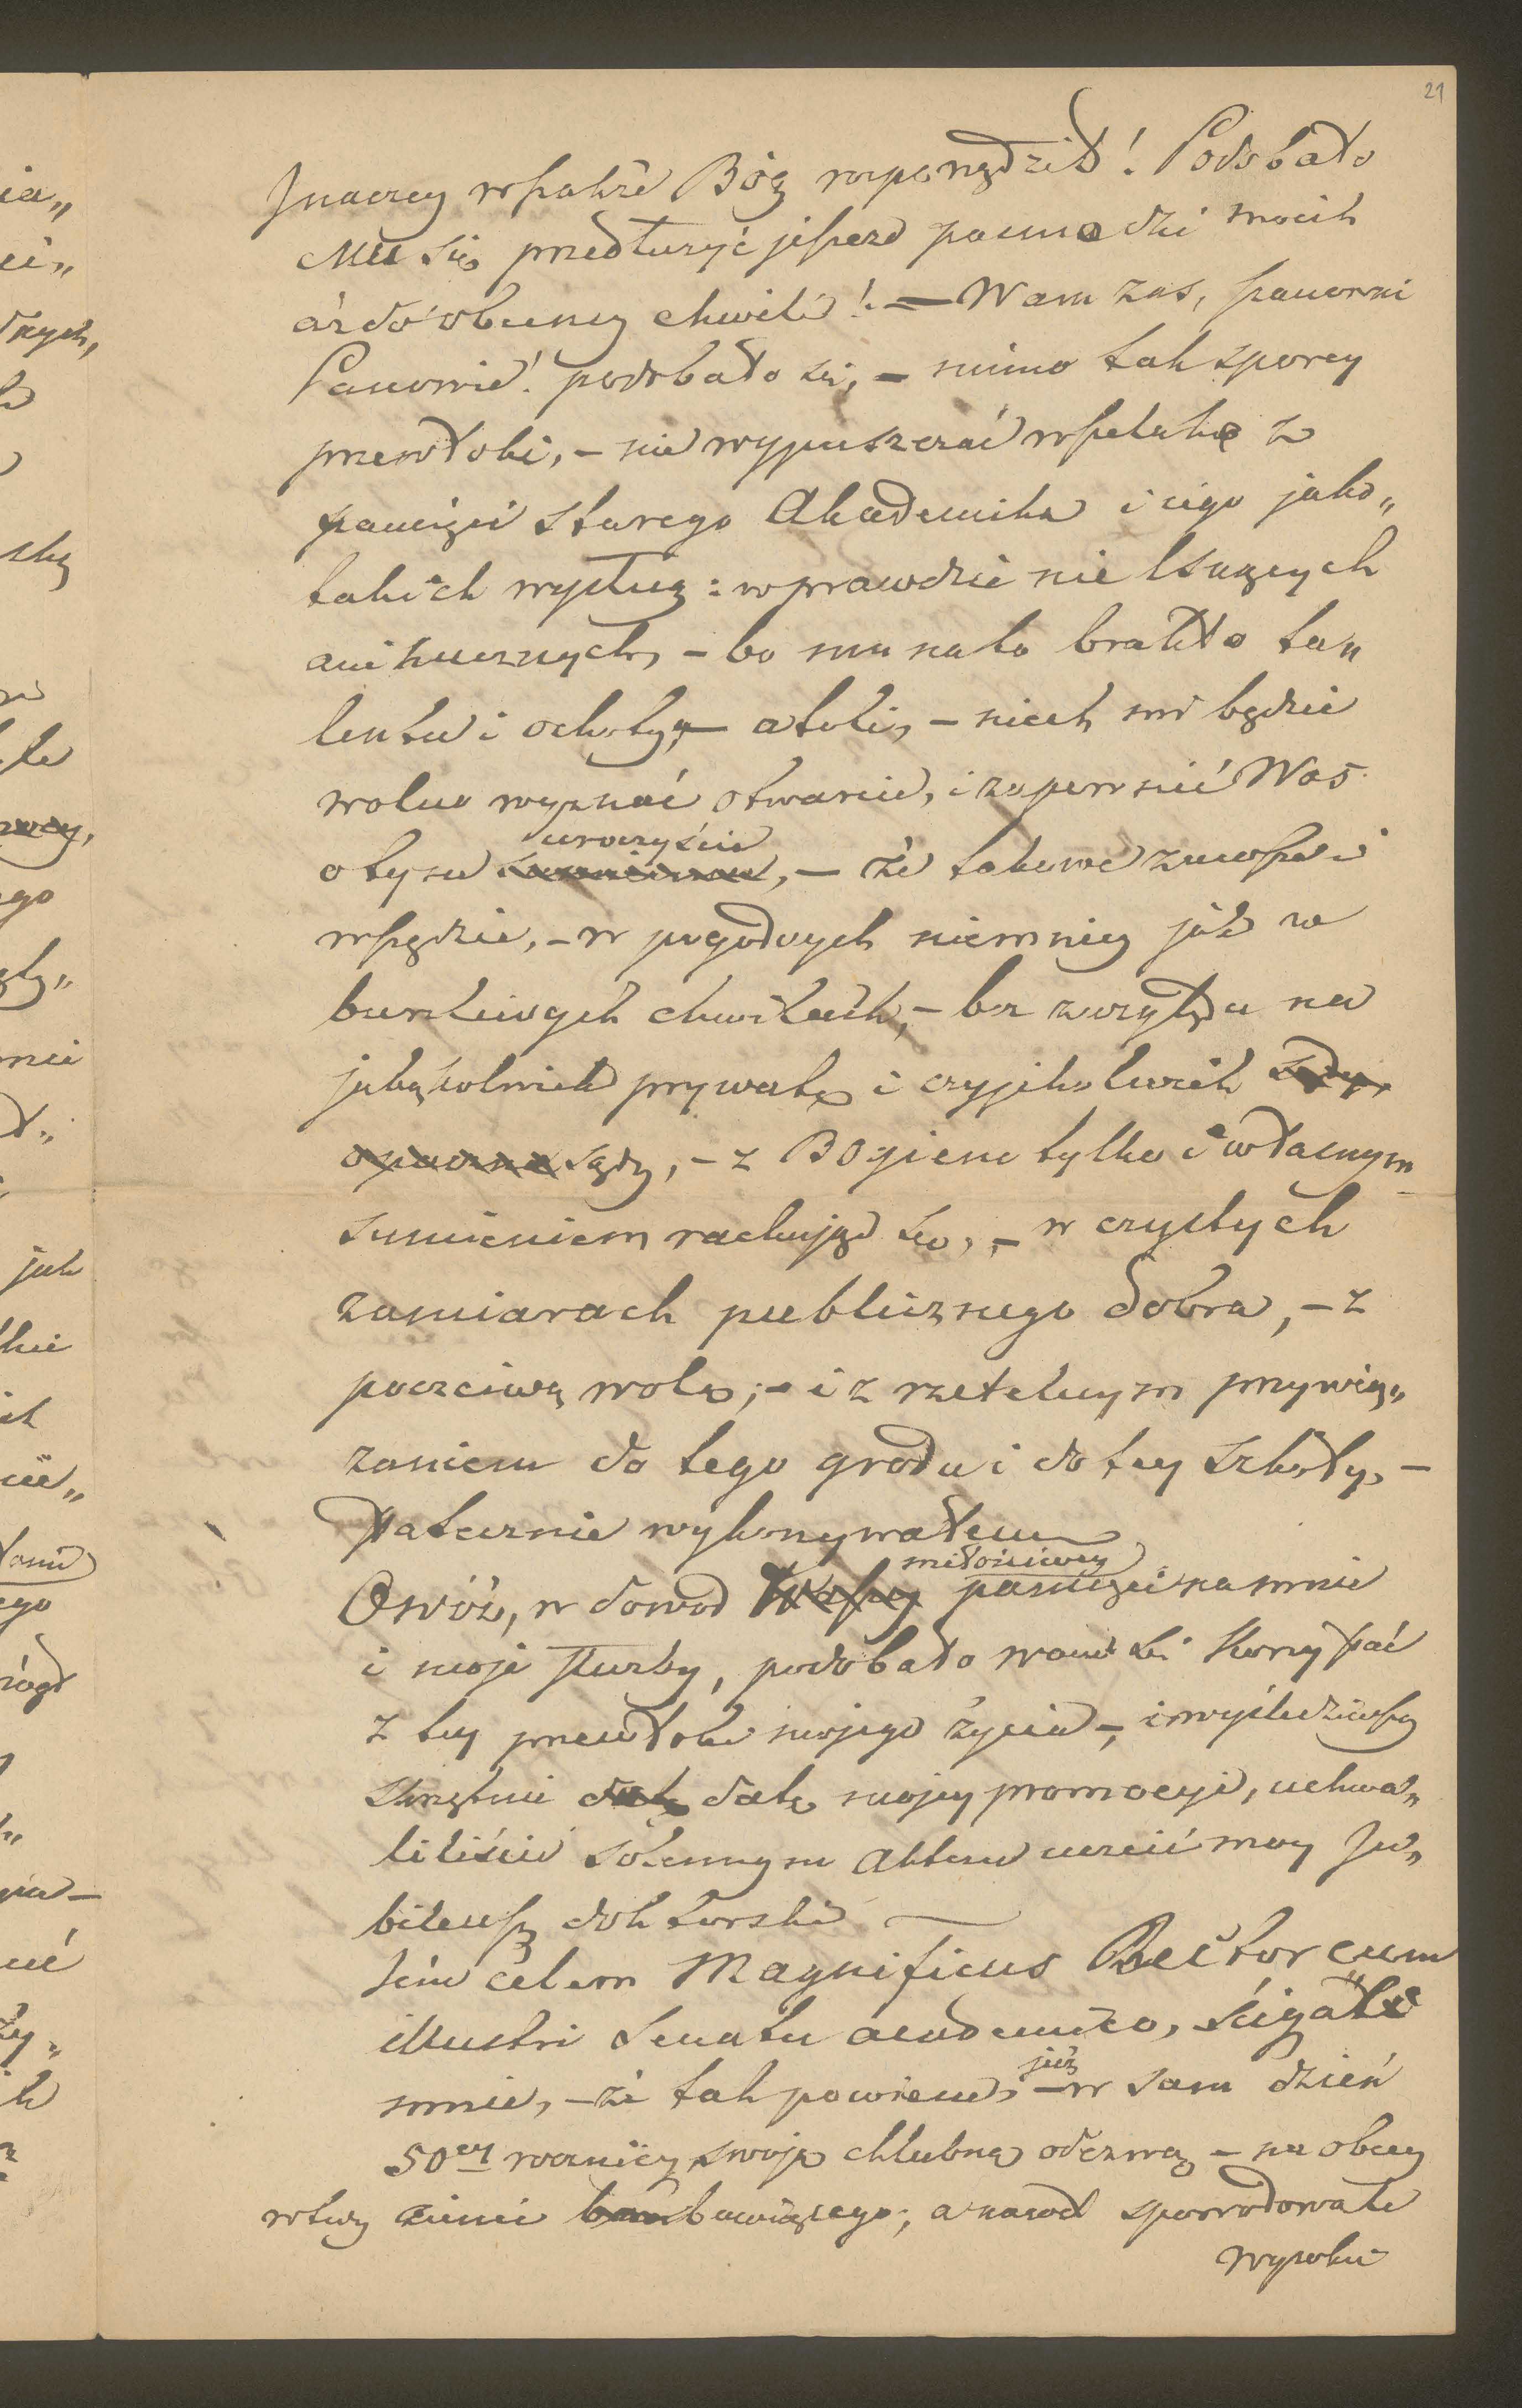 21
Inaczey wszakże Bóg rozporządził! Podobało
Mu się przedłużyć jeszcze pasmo dni moich
aż do obecney chwili! — Wam zaś, szanowni
Panowie! podobało się, – mimo tak sporey
przewłoki, – nie wypuszczać wszelako z
pamięci starego Akademika i iego jako„
takich wysług: wprawdzie nie lsnących
ani hucznych, – bo mu na to brakło ta„
lentu i ochoty, – atoli, – niech mi będzie
wolno wyznać otwarcie, i zapewnić Was
uroczyście
o tym sumiennie, – że takowe zawsze i
wszędzie, – w pogodnych niemniey jak w
burzliwych chwilach, – bez względu na
jakąkolwiek prywatę i czyjekolwiek
sądy, – z Bogiem tylko i własnym
sumieniem rachując się, – w czystych
zamiarach publicznego dobra, – z
poczciwą wolą; – i z rzetelnym przywią„
zaniem do tego grodu i do tey szkoły, –
statecznie wykonywałem
miłościwey
Owóż, w dowód Waszey pamięci na mnie
i moje służby, podobało wam się korzystać
z tey przewłoki mojego życia –, i wyśledziwszy
skrzętnie datę datę mojey promocyi, uchwa„
liliście solennym aktem uczcić moy Ju„
bileusz doktorski —
Tém celem Magnificus Rector cum
illustri Senatu academico, ścigał
już
mnie, – że tak powiem, – w sam dzień
50ey rocznicy swoją chlubną odezwą – na obcey
wtedy ziemi bawiącego; a nawet spowodował
wysokie